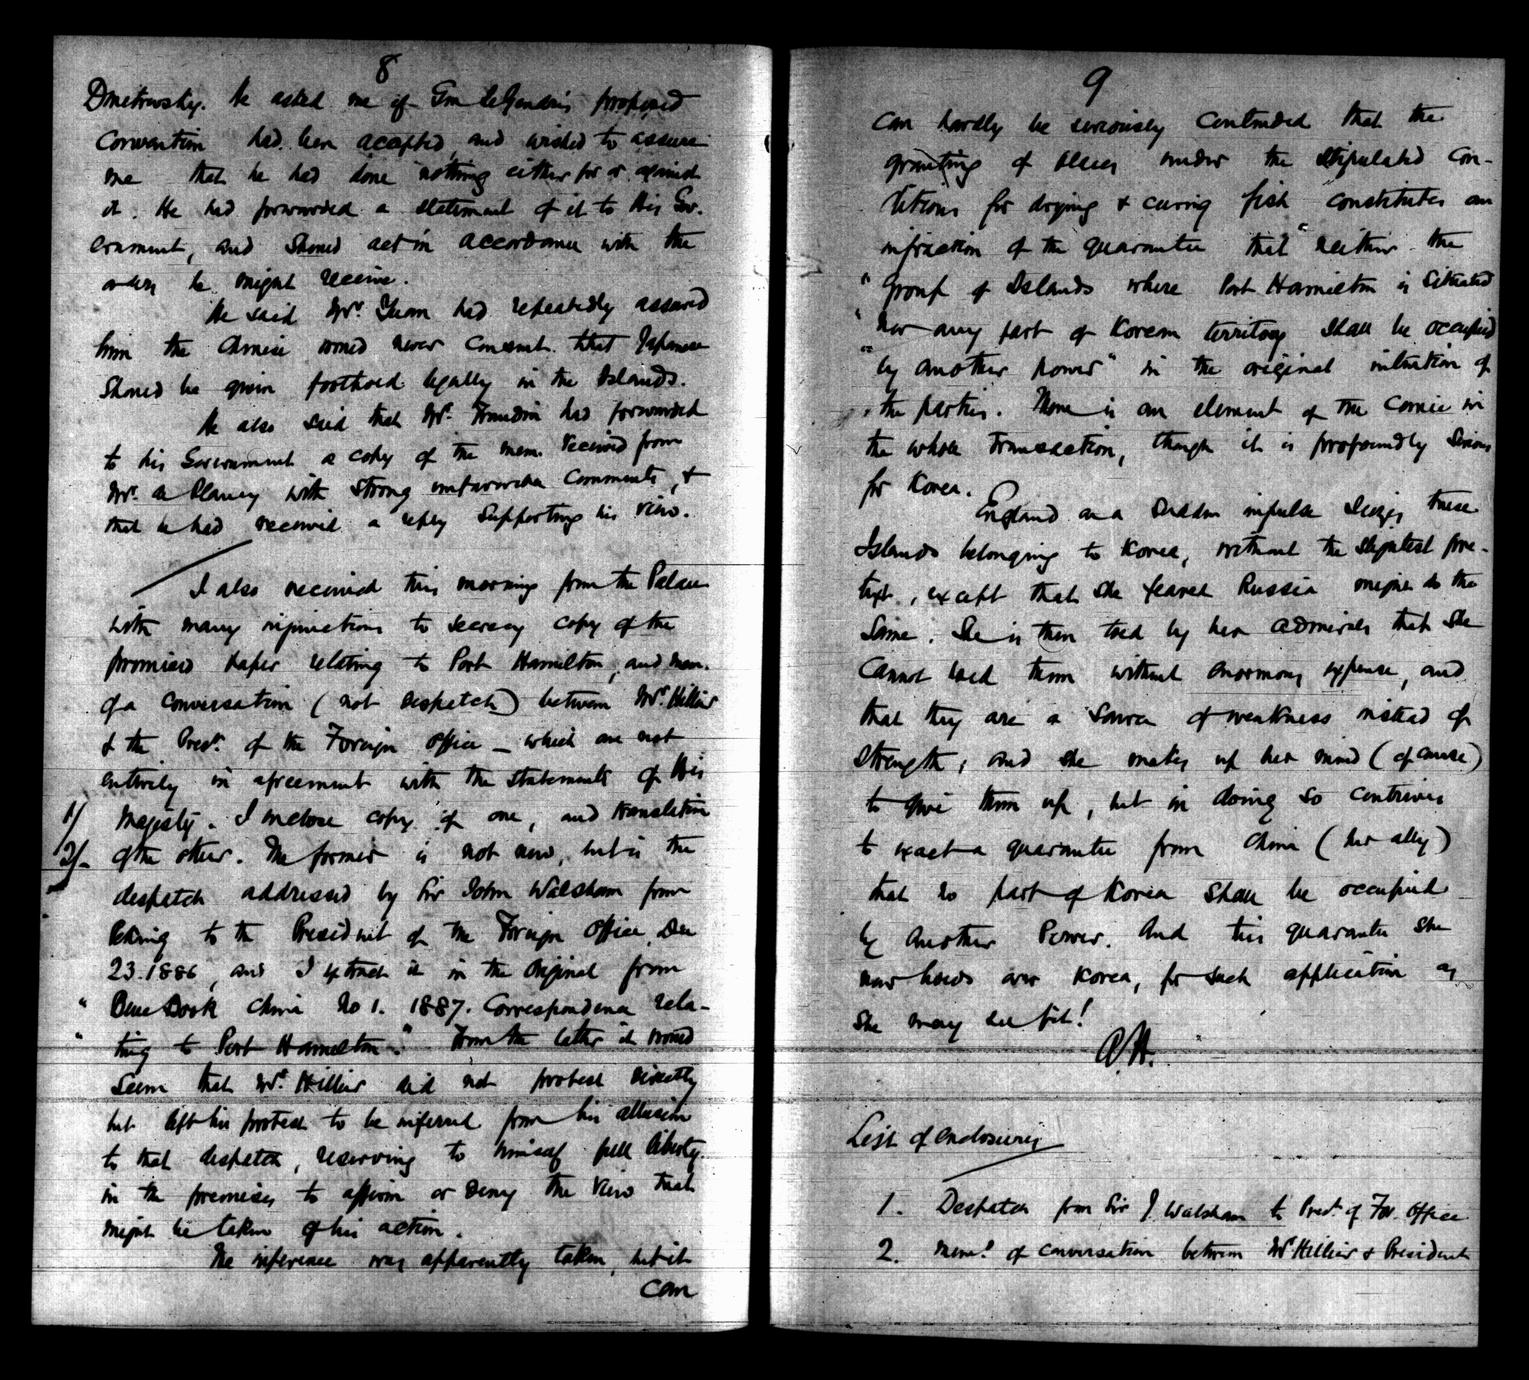 8
Dmitrevsky. He asked me if Gen LeGendre's proposed
Convention had been accepted, and wished to assure
me that he had done nothing either for or against
it. He had forwarded a statement of it to his Gov-
ernment, and should act in accordance with the
orders he might receive.
He said Mr. Yuan had repeatedly assured
him the Chinese would never consent that Japanese
should be given foothold legally in the Islands.
He also said that Mr. Frandin had forwarded
to his Government a copy of the mem. received from
Mr. de Plancy with strong unfavorable comments, &
that he had received a reply supporting his view.
I also received this morning from the Palace
with many injunctions to secrecy copy of the
promised paper relating to Port Hamilton, and mem.
of a conversation (not despatch) between Mr. Hillier
& the Prest. of the Foreign Office — which are not
entirely in agreement with the statements of His
1/ Majesty. I inclose copy of one, and translation
2/- of the other. The former is not new, but is the
despatch addressed by Sir John Walsham from
Peking to the President of the Foreign Office, Dec
23. 1886, and I extract it in the original from
" Blue Book China No 1. 1887. Correspondence rela-
" ting to Port Hamilton." From the latter it would
seem that Mr. Hillier did not protest directly
but left his protest to be inferred from his allusion
to that despatch, reserving to himself full liberty
in the premises to affirm or deny the view that
might be taken of his action.
The inference was apparently taken, but it
can
9
can hardly be seriously contended that the
granting of places under the stipulated con-
ditions for drying & curing fish constitutes an
infraction of the guarantee that "neither the
" Group of Islands where Port Hamilton is situated
" nor any part of Korean territory shall be occupied
" by another power" in the original intention of
the parties. There is an element of the comic in
the whole transaction, though it is profoundly serious
for Korea.
England on a sudden impulse seizes these
Islands belonging to Korea, without the slightest pre-
text, except that she feared Russia might do the
same. She is then told by her admirals that she
cannot hold them without enormous expense, and
that they are a source of weakness instead of
strength, and she makes up her mind (of course)
to give them up, but in doing so contrives
to exact a guarantee from China (her ally)
that no part of Korea shall be occupied
by another Power. And this guarantee she
now holds over Korea, for such application as
she may see fit!
A.H.
List of enclosures
1. Despatch from Sir J. Walsham to Prest. of For. Office
2. Mem. of conversation between Mr Hillier & President